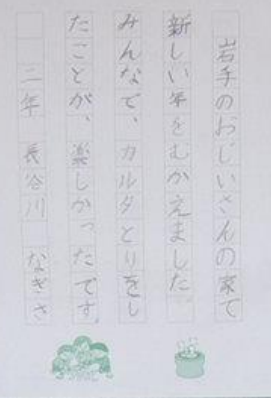 岩手のおじいさんの家で
新しい年をむかえました
みんなで、カルタとりをし
たことが、楽しかったです。
二年 長谷川 なぎさ